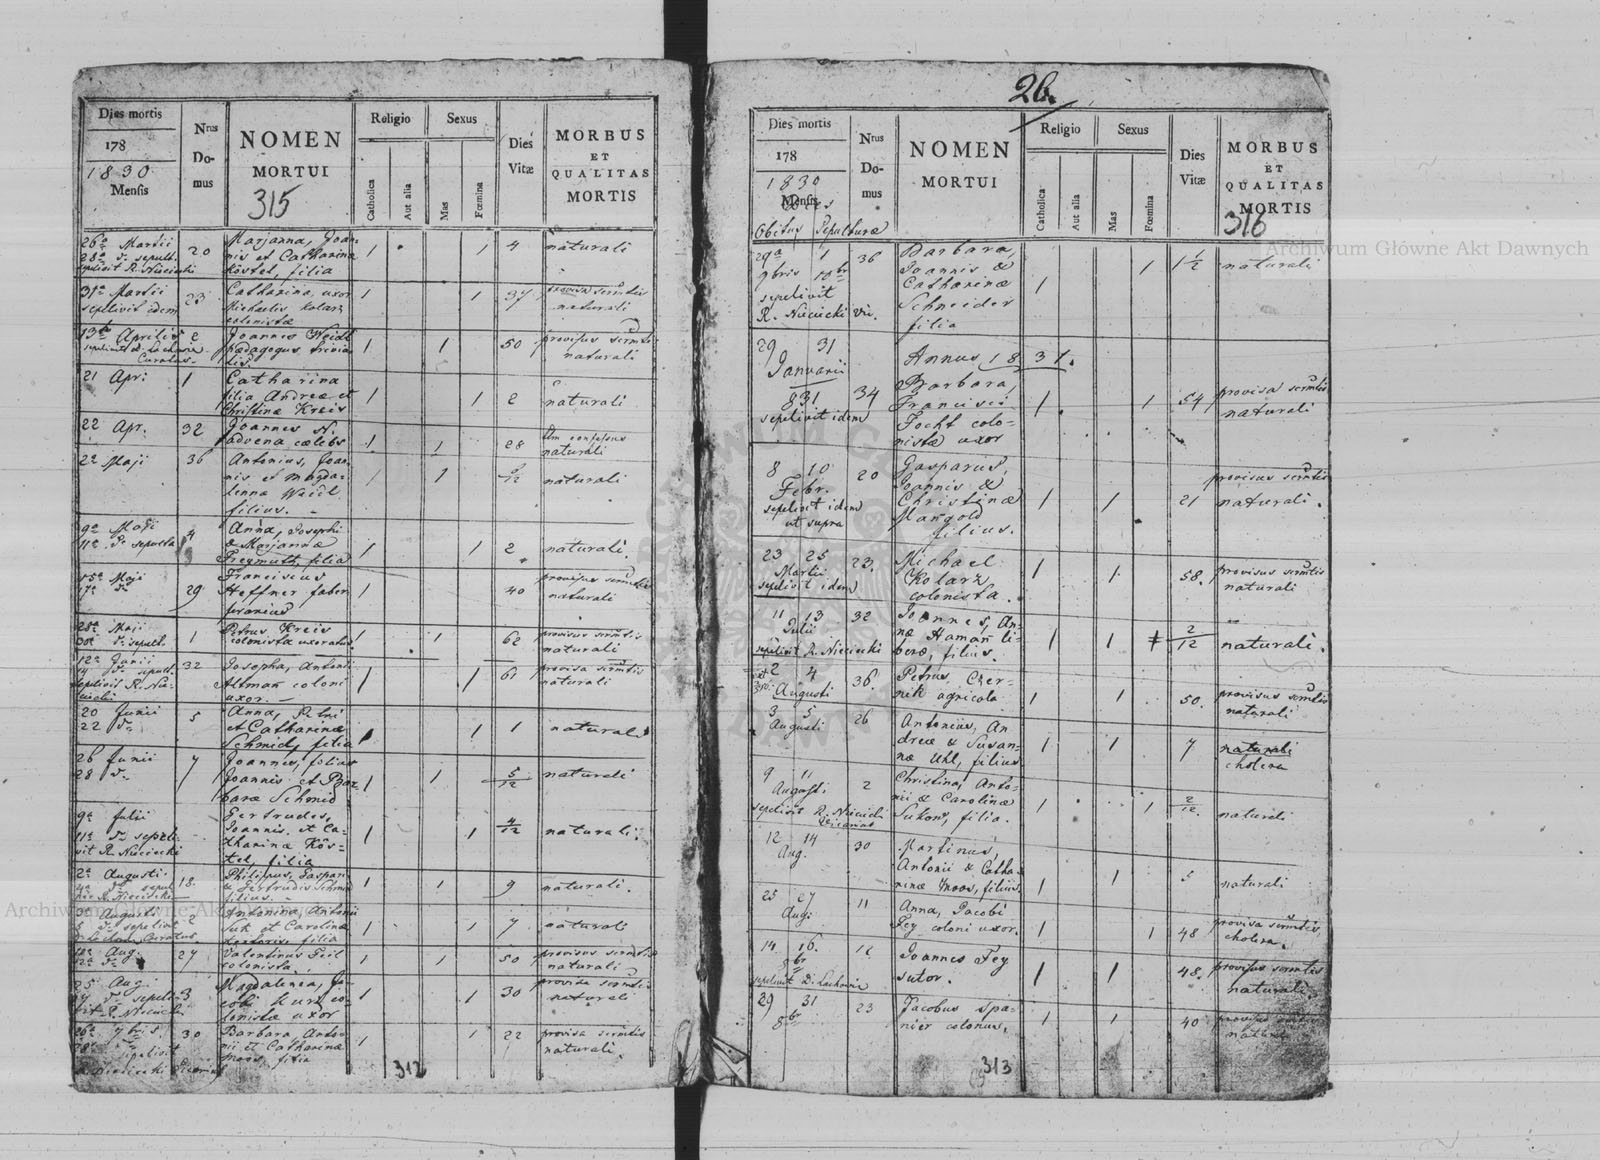 Dies mortis
178
1830
Mensis
Nrus
Do-
mus
NOMEN
MORTUI
315
Religio
Catholica
Aut alia
Sexus
Mas
Fœmina
Dies
Vitæ
MORBUS
ET
QUALITAS
MORTIS
26a Martii
28a d. sepult.
sepelivit R. Nieciecki
20
Marjanna, Joan-
nis et Catharina
Köstel, filia
1 1 4 naturali
31a Martii
sepelivit idem
23
Catharina, uxor
Michaelis Kolarz
colonistæ
1 1 37
provisa scrmtis
naturali
13a Aprilis
Curatus
2
Joannes Weidl
Pædagogus trivia-
lis.
1 1 50
provisus scrmtis
naturali
21 Apr:
1
Catharina
filia Andreæ et
Christinæ Kreis
1 1 2 naturali
22 Apr.
32
Joannes N.
advena cælebs
1 1 28
naturali
2a Maji
36
Antonius, Joan-
nis et Magda-
lenna Weidl
filius.
1 1 naturali
9a Maji
11a d. sepulta
4
Anna, Josephi
& Marjannæ
Freymuth, filia
1 1 2 naturali.
15a Maji
17a d.
29
Franciscus
Heffner faber
1 40
provisus scrmtis
naturali
28a Maji
30a d. sepult.
1
Petrus Kreis
colonista uxoratus
1 1 62
provisus scrmtis
naturali
12a Junii
14 d. sepult.
sepelivit R. Nie-
ciecki
32
Josepha, Antoni
Altman coloni
uxor.
1 1 61
provisa scrmtis
naturali
20 Junii
22 d.
5
Anna, Petri
et Catharinæ
Schmid, filia
1 1 1 naturali
26 Junii
28 d.
7
Joannes, filius
Joannis et Bar
baræ Schmid
1 1 5/12 naturali
9a Julii
11a d. sepeli-
vit R. Nieciecki
Gertrudes,
Joannis et Ca-
tharinæ Kös-
tel, filia
1 1 4/12 naturali.
2a Augusti.
4a d. sepul
18.
Philipus, Gaspari
& Gertrudis Schmid
filius.
1 1 9 naturali.
Augusti
5 d. sepelivit
Curatus.
2
Antonina, Antonii
Suk et Carolinæ
filia
1 1 7 naturali
10a Aug.
12a d.
27
Valentinus Geil
colonista
1 1 50
provisus scrmtis
naturali
25 Aug.
27 d. sepeli-
vit R. Nieciecki
3
Magdalena, Ja-
cobi Kurtz co-
lonistæ uxor
1 1 30
provisa scrmtis
naturali
26a 7bris
28a
sepelivit
R. Nieciecki Vicarius
30
Barbara Anto-
nii et Catharinæ
Moos, filia
1 1 22
provisa scrmtis
naturali.
312
26.
Dies mortis
178
1830
Mensis
Dies
Obitus Sepulturæ
Nrus
Do-
mus
NOMEN
MORTUI
Religio
Catholica
Aut alia
Sexus
Mas
Fœmina
Dies
Vitæ
MORBUS
ET
QUALITAS
MORTIS
316
29a 1
9bris 10br
sepelivit
R. Nieciecki Vic.
36
Barbara,
Joannis &
Catharinæ
Schneider
filia
1 1 1 1/2 naturali
Annus 1831.
29 31
Januarii
831
sepelivit idem
34
Barbara,
Francisci
Focht colo-
nistæ uxor
1 1 54
provisa scrmtis
naturali
8 10
Febr.
sepelivit idem
ut supra
20
Gasparus,
Joannis &
Christinæ
Mangold
filius.
1 1 21
provisus scrmtis
naturali.
23 25
Martii
sepelivit idem
23
Michael
Kolarz
colonista.
1 1 58.
provisus scrmtis
naturali
11 13
Julii
sepelivit R. Nieciecki
32
Joannes, An-
næ Haman li-
beræ, filius.
1 1 2/12 naturali.
2 4
Augusti
36.
Petrus, Cher-
nik agricola
1 1 50.
provisus scrmtis
naturali
3 5
Augusti
26
Antonius, An-
dreæ & Susan-
næ Uhl, filius
1 1 7
naturali
cholera
9 11
Augusti
sepelivit R. Nieciecki
Vicarius
2
Christina, Anto-
nii & Carolinæ
Sukow, filia.
1 1 2/12 naturali
12 14
Aug.
30
Martinus,
Antonii & Catha-
rinæ Moos, filius.
1 1 5 naturali
25 27
Augi
11
Anna, Jacobi
Fey coloni uxor.
1 1 48
provisa scrmtis,
cholera.
14 16.
8br
Joannes Fey
sutor.
1 1 48.
provisus scrmtis
naturali.
29 31
8br
23
Jacobus Spa-
nier colonus.
1 1 40
313
Archiwum Główne Akt Dawnych
Archiwum Główne Akt Dawnych